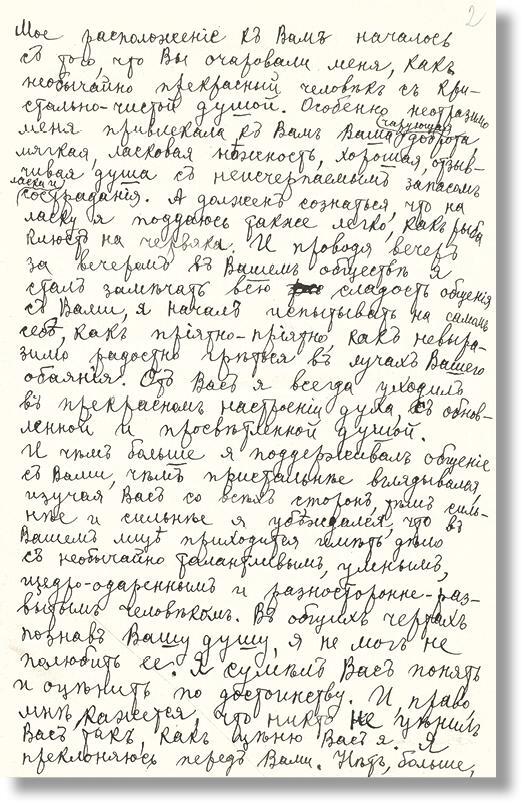 2
Мое расположенiе къ Вамъ началось
съ того, что Вы очаровали меня, какъ
необычайно прекрасный человѣкъ съ кри-
стально-чистой душой. Особенно неотразимо
меня привлекала къ Вамъ Ваша чарующая доброта,
мягкая, ласковая нѣжность, хорошая, отзыв-
чивая душа съ неисчерпаемымъ запасомъ
ласки и состраданiя. А долженъ сознаться, что на
ласку я поддаюсь также легко, какъ рыба
клюетъ на червяка. И проводя вечеръ
за вечеромъ въ Вашемъ обществѣ я
сталъ замѣчать всю сладость общенiя
съ Вами, я началъ испытывать на самомъ
себѣ, какъ прiятно-прiятно, какъ невыра-
зимо радостно грѣться въ лучахъ Вашего
обаянiя. Отъ Васъ я всегда уходилъ
въ прекрасномъ настроенiи духа, съ обнов-
ленной и просвѣтленной душой.
И чѣмъ больше я поддерживалъ общенiе
съ Вами, чѣмъ пристальнѣе вглядывался,
изучая Васъ со всѣхъ сторонъ, тѣмъ силь-
нѣе и сильнѣе я убѣждался, что въ
Вашемъ лицѣ приходится имѣть дѣло
съ необычайно талантливымъ, умнымъ,
щедро-одареннымъ и разносторонне-раз-
витымъ человѣкомъ. Въ общихъ чертахъ
познавъ Вашу душу, я не могъ не
полюбить ее. Я сумѣлъ Васъ понять
и оцѣнить по достоинству. И право
мнѣ кажется, что никто не цѣнилъ
Васъ такъ, какъ цѣню Васъ я. Я
преклоняюсь передъ Вами. Нѣтъ, больше,